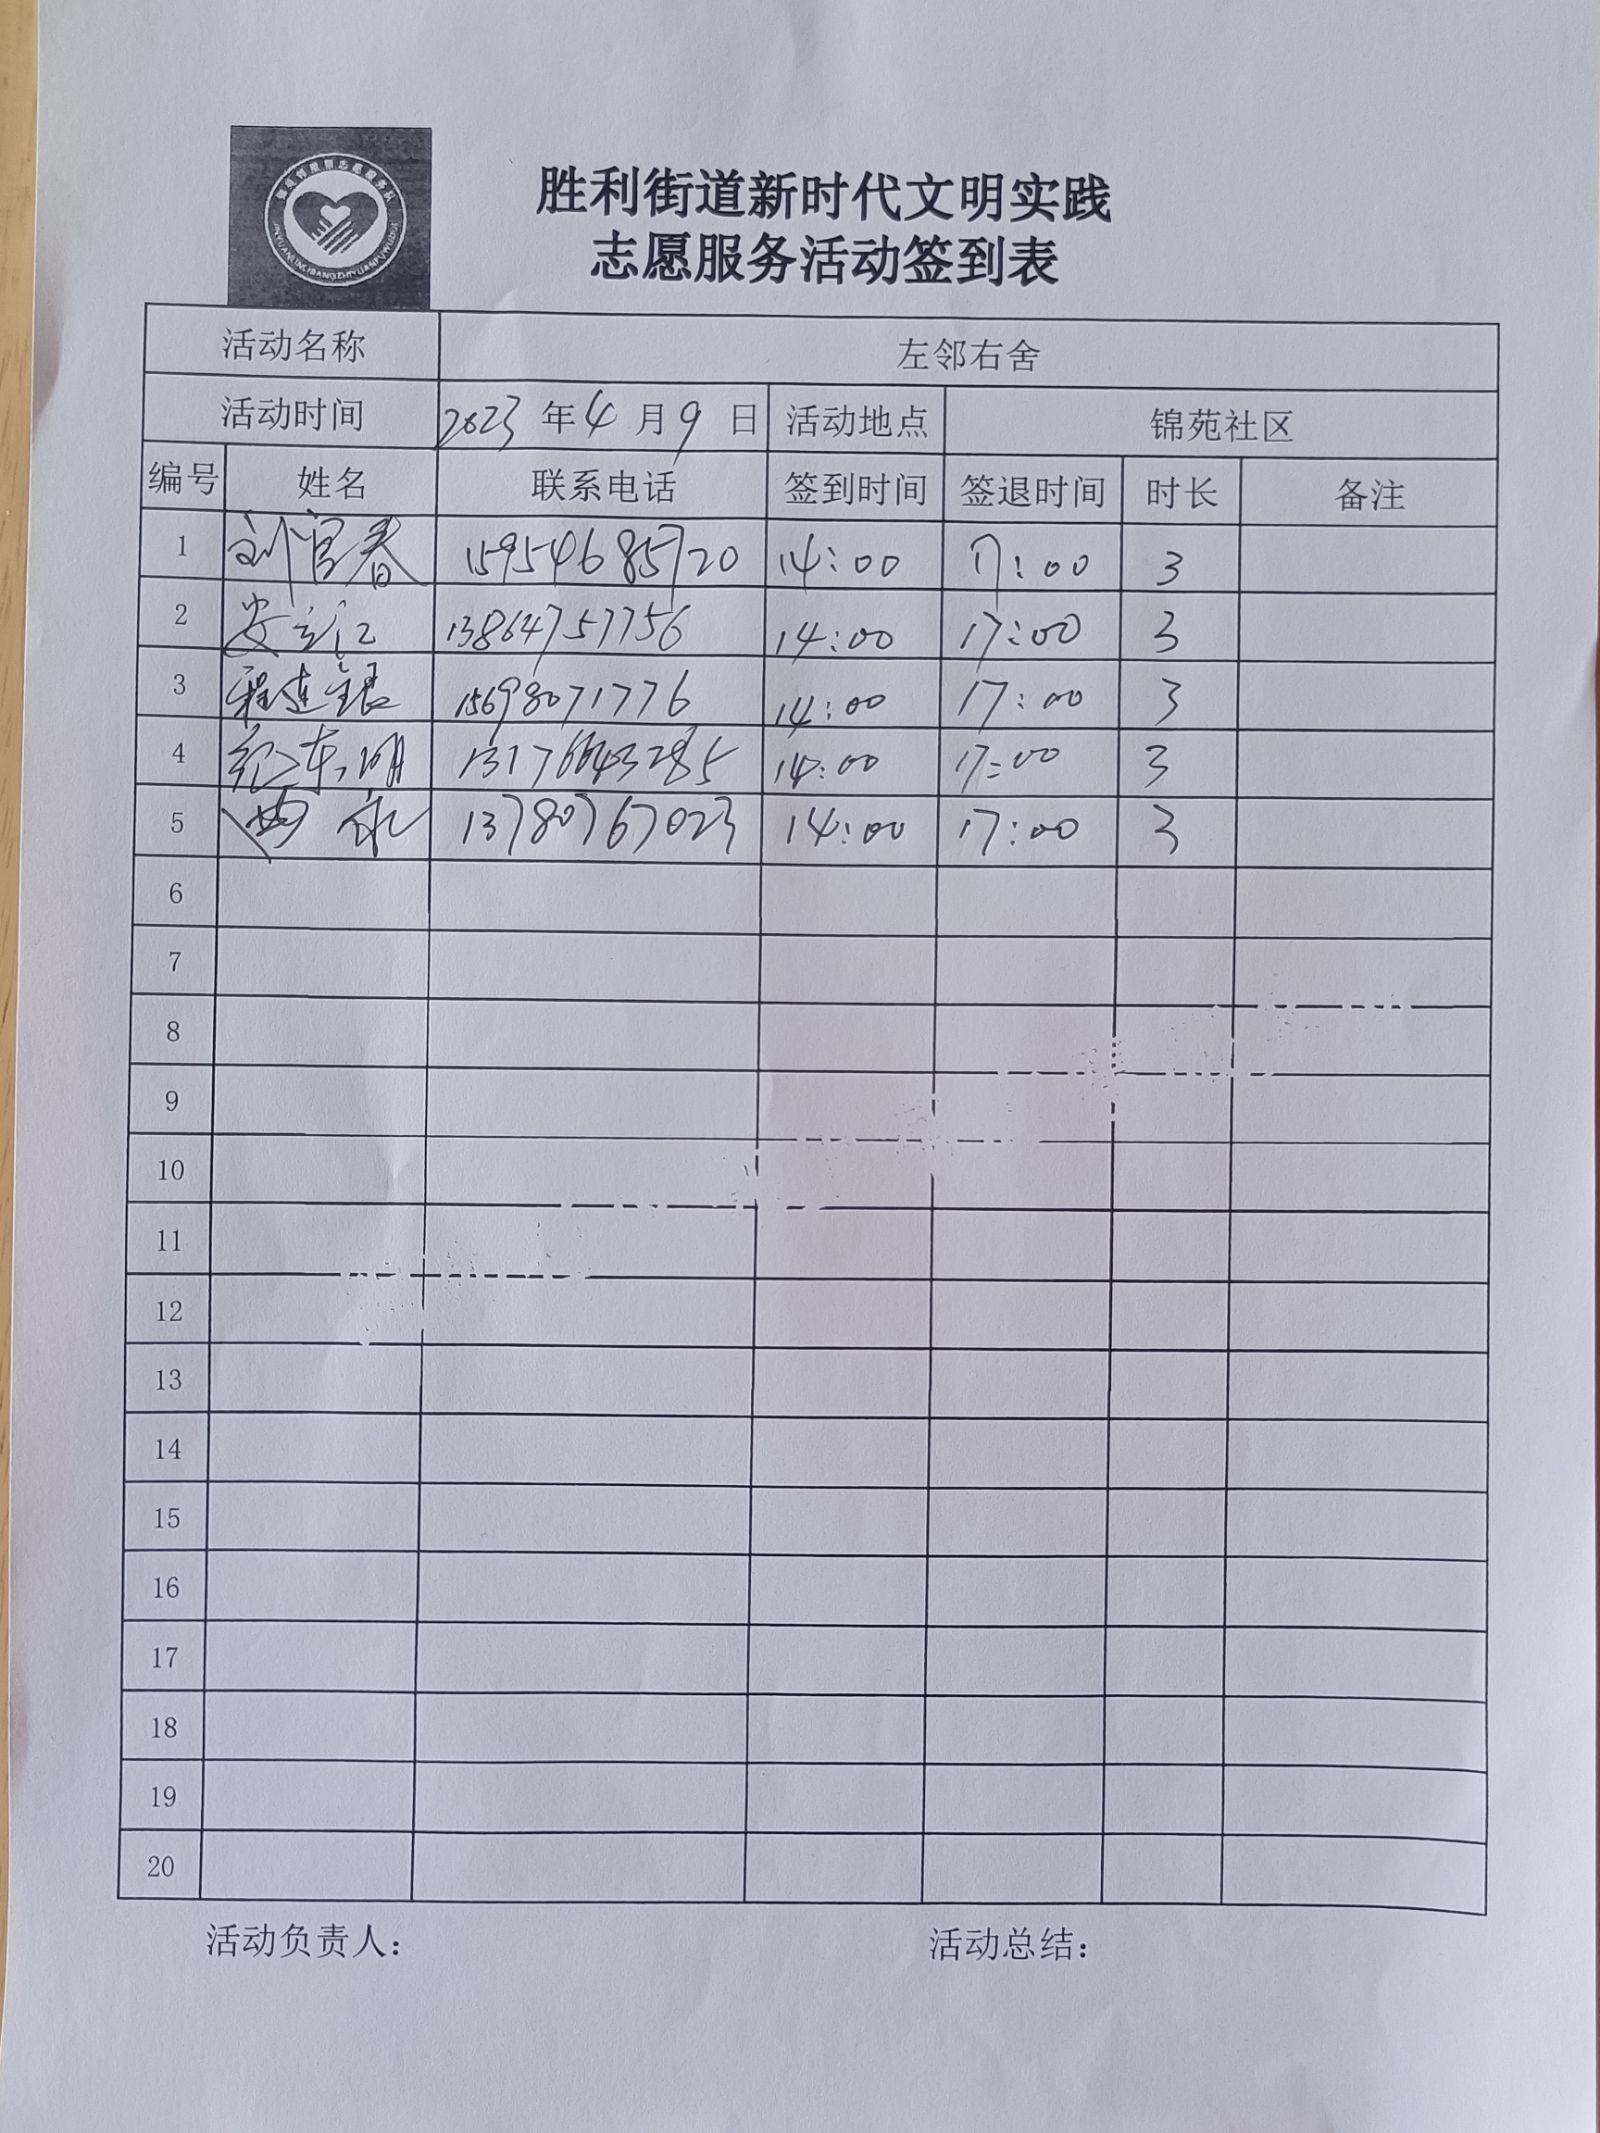 胜利街道新时代文明实践
志愿服务活动签到表
活动名称 左邻右舍
活动时间 2023 年 4 月 9 日 活动地点 锦苑社区
编号 姓名 联系电话 签到时间 签退时间 时长 备注
1 刘官春 15954685720 14:00 17:00 3
2 安立江 13864757756 14:00 17:00 3
3 程连银 15698071776 14:00 17:00 3
4 东明 13176643285 14:00 17:00 3
5 13780767023 14:00 17:00 3
6
7
8
9
10
11
12
13
14
15
16
17
18
19
20
活动负责人： 活动总结：